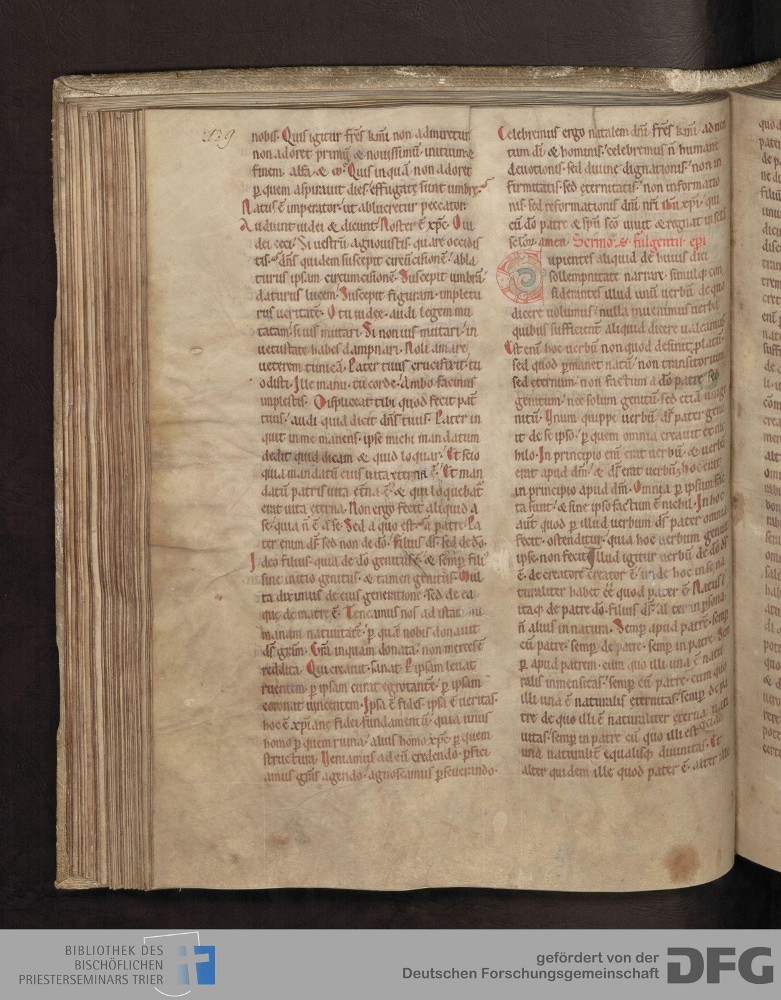 139
nobis. Quis igitur fr̅es k̅mi non admiretur
non adoret primu̅ & nouissimu̅ initium &
finem alfa & ω. Quis inqua̅ non adoret
ꝑ quem aspirauit dies effugate sunt umbre.
Natus e̅ imperator. ut ablueretur peccator.
Audiunt iudei & dicunt. Noster e̅ xp̅c. O ui
dei ceci. Si uestru̅ agnouistis. quare occidis
tis. d̅n̅s quidem suscepit circu̅cisione̅. abla
turus ipsam circumcisione̅. Suscepit umbra̅
daturus lucem. Suscepit figuram. impletu
rus ueritate̅. O tu iudee. audi legem mu
tatam. si uis mutari. Si non uis mutari. in
uetustate habes dampnari. Noli amare
ueterem tunica̅. Pater tuus crucifixit. tu
odisti. Ille manu. tu corde. Ambo facinus
implestis. Displiceat tibi quod fecit pat̅
tuus. audi quid dicit d̅n̅s tuus. Pater in
quit in me manens. ipse michi mandatum
dedit quid dicam & quid loquar. Et scio
quia mandatu̅ eius uita eterna e̅. Et man
datu̅ patris uita et̅na e̅. & qui loquebat̅
erat uita eterna. Non ergo fecit aliquid a
se. quia n̅ e̅ a se. Sed a quo est. a patre. Pa
ter enim d̅s sed non de d̅o. Filius d̅s. sed de d̅o.
Ideo filius. quia de d̅o genitus e̅. & semꝑ fili
sine initio genitus. & tamen genitus. Mul
ta diximus de eius generatione. sed de ea
que de matre e̅. Teneamus nos ad ista̅ hu
manam natiuitate̅. ꝑ qua̅ nobis donauit
d̅s gr̅am. Gr̅a inquam donata. non mercese̅
reddita. Qui creauit. sanat. P ipsam leuat
ruentem. ꝑ ipsam curat egrotante̅. ꝑ ipsam
coronat uincentem. Ipsa e̅ fides. ipsa e̅ ueritas.
hoc e̅ xp̅iane fidei fundamentu̅. quia unus
homo ꝑ quem ruina. alius homo xp̅c. ꝑ quem
structura. Veniamus ad eu̅ credendo. ꝓfici
amus gr̅as agendo. agnoscamus ꝑseuerando.
Celebremus ergo natalem d̅n̅i fr̅es k̅mi aduen
tum d̅i & hominis. celebremus n̅ humane
deuotionis. sed diuine dignationis. non in
firmitatis. sed eternitatis. non informatio
nis. sed reformationis d̅n̅i n̅r̅i ih̅u xp̅i. qui
cu̅ d̅o patre & sp̅u sc̅o uiuit & regnat in sc̅la
sc̅lor. amen. Sermo s. fulgentii ep̅i
Cupientes aliquid de huius diei
sollempnitate narrare. simulq; con
siderantes illud unu̅ uerbu̅ de quo
dicere uolumus. nulla inuenimus uerba
quibus sufficient̅ aliquid dicere ualeamus.
Est eni̅ hoc uerbu̅ non quod definit̅ ꝓlatu̅.
sed quod ꝑmanet natu̅. non transitorium
sed eternum. non factum a d̅o patre sed
genitum. nec solum genitu̅. sed etia̅ unige
nitu̅. Vnum quippe uerbu̅ d̅s pater genu
it de se ipso. ꝑ quem omnia creauit ex ni
hilo. In principio eni̅ erat uerbu̅. & uerbu̅
erat apud d̅m. & d̅s erat uerbu̅. hoc erat
in principio apud d̅m. Omnia ꝑ ipsum fac
ta sunt. & sine ipso factum e̅ nichil. In hoc
aut̅ quod ꝑ illud uerbum d̅s pater omnia
fecit. ostenditur. quia hoc uerbum genuit
ipse. non fecit. Illud igitur uerbu̅ de d̅o d̅s
e̅. de creatore creator e̅. unde hoc in se na
turaliter habet e̅e̅ quod pater e̅. Natus e̅
itaq; de patre d̅o. filius d̅s. alter in ꝑsona.
n̅ alius in natura. Semꝑ apud patre̅. semꝑ
cu̅ patre. semꝑ de patre. semꝑ in patre. Sem
ꝑ apud patrem. cum quo illi una e̅ natu
ralis inmensitas. semꝑ cu̅ patre. cum quo
illi una e̅ naturalis eternitas. semꝑ de pa
tre de quo illi e̅ naturaliter eterna nati
uitas. semꝑ in patre cu̅ quo illi est
una naturalit̅ equalisq; diuinitas. Et
alter quidem ille quod pater e̅. alter ille
BIBLIOTHEK DES
BISCHÖFLICHEN
PRIESTERSEMINARS TRIER
gefördert von der
Deutschen Forschungsgemeinschaft
DFG